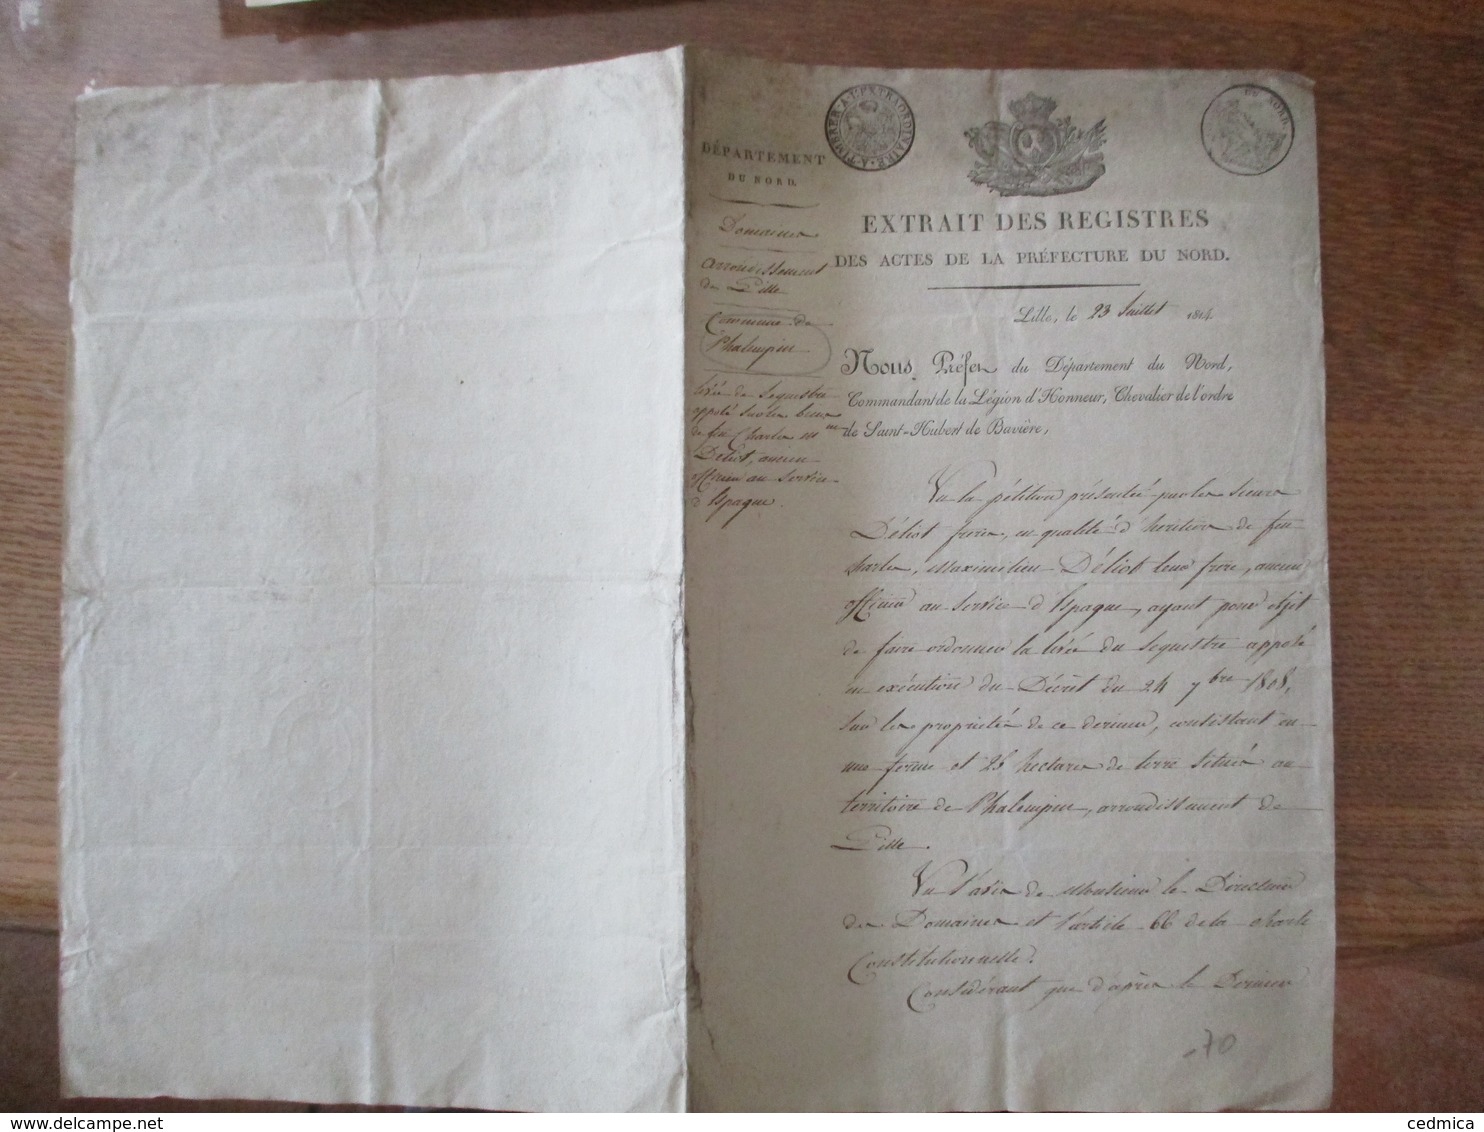 A TIMBRER A L'EXTRAORDINAIRE
DU NORD
DÉPARTEMENT
DU NORD.
Domaines
Arrondissement
de Lille
Commune de
Phalempin
levée de sequestre
apposé sur les biens
de feu Charles Mm
Déliot, ancien
officier au service
d'Espagne.
EXTRAIT DES REGISTRES
DES ACTES DE LA PRÉFECTURE DU NORD.
Lille, le 23 Juillet 1814
Nous, Préfet du Département du Nord,
Commandant de la Légion d'Honneur, Chevalier de l'ordre
de Saint-Hubert de Bavière,
Vu la pétition présentée par les sieurs
Déliot frères, en qualité d'héritiers de feu
Charles, Maximilien Déliot leur frère, ancien
officier au service d'Espagne, ayant pour objet
de faire ordonner la levée du sequestre apposé
en exécution du Décret du 24 7bre 1808,
sur les propriétés de ce dernier, consistant en
une ferme et 26 hectares de terre située au
territoire de Phalempin, arrondissement de
Lille.
Vu l'avis de Monsieur le Directeur
des Domaines et l'article 66 de la charte
Constitutionnelle.
Considérant que d'après le Dernier
70
cedmica